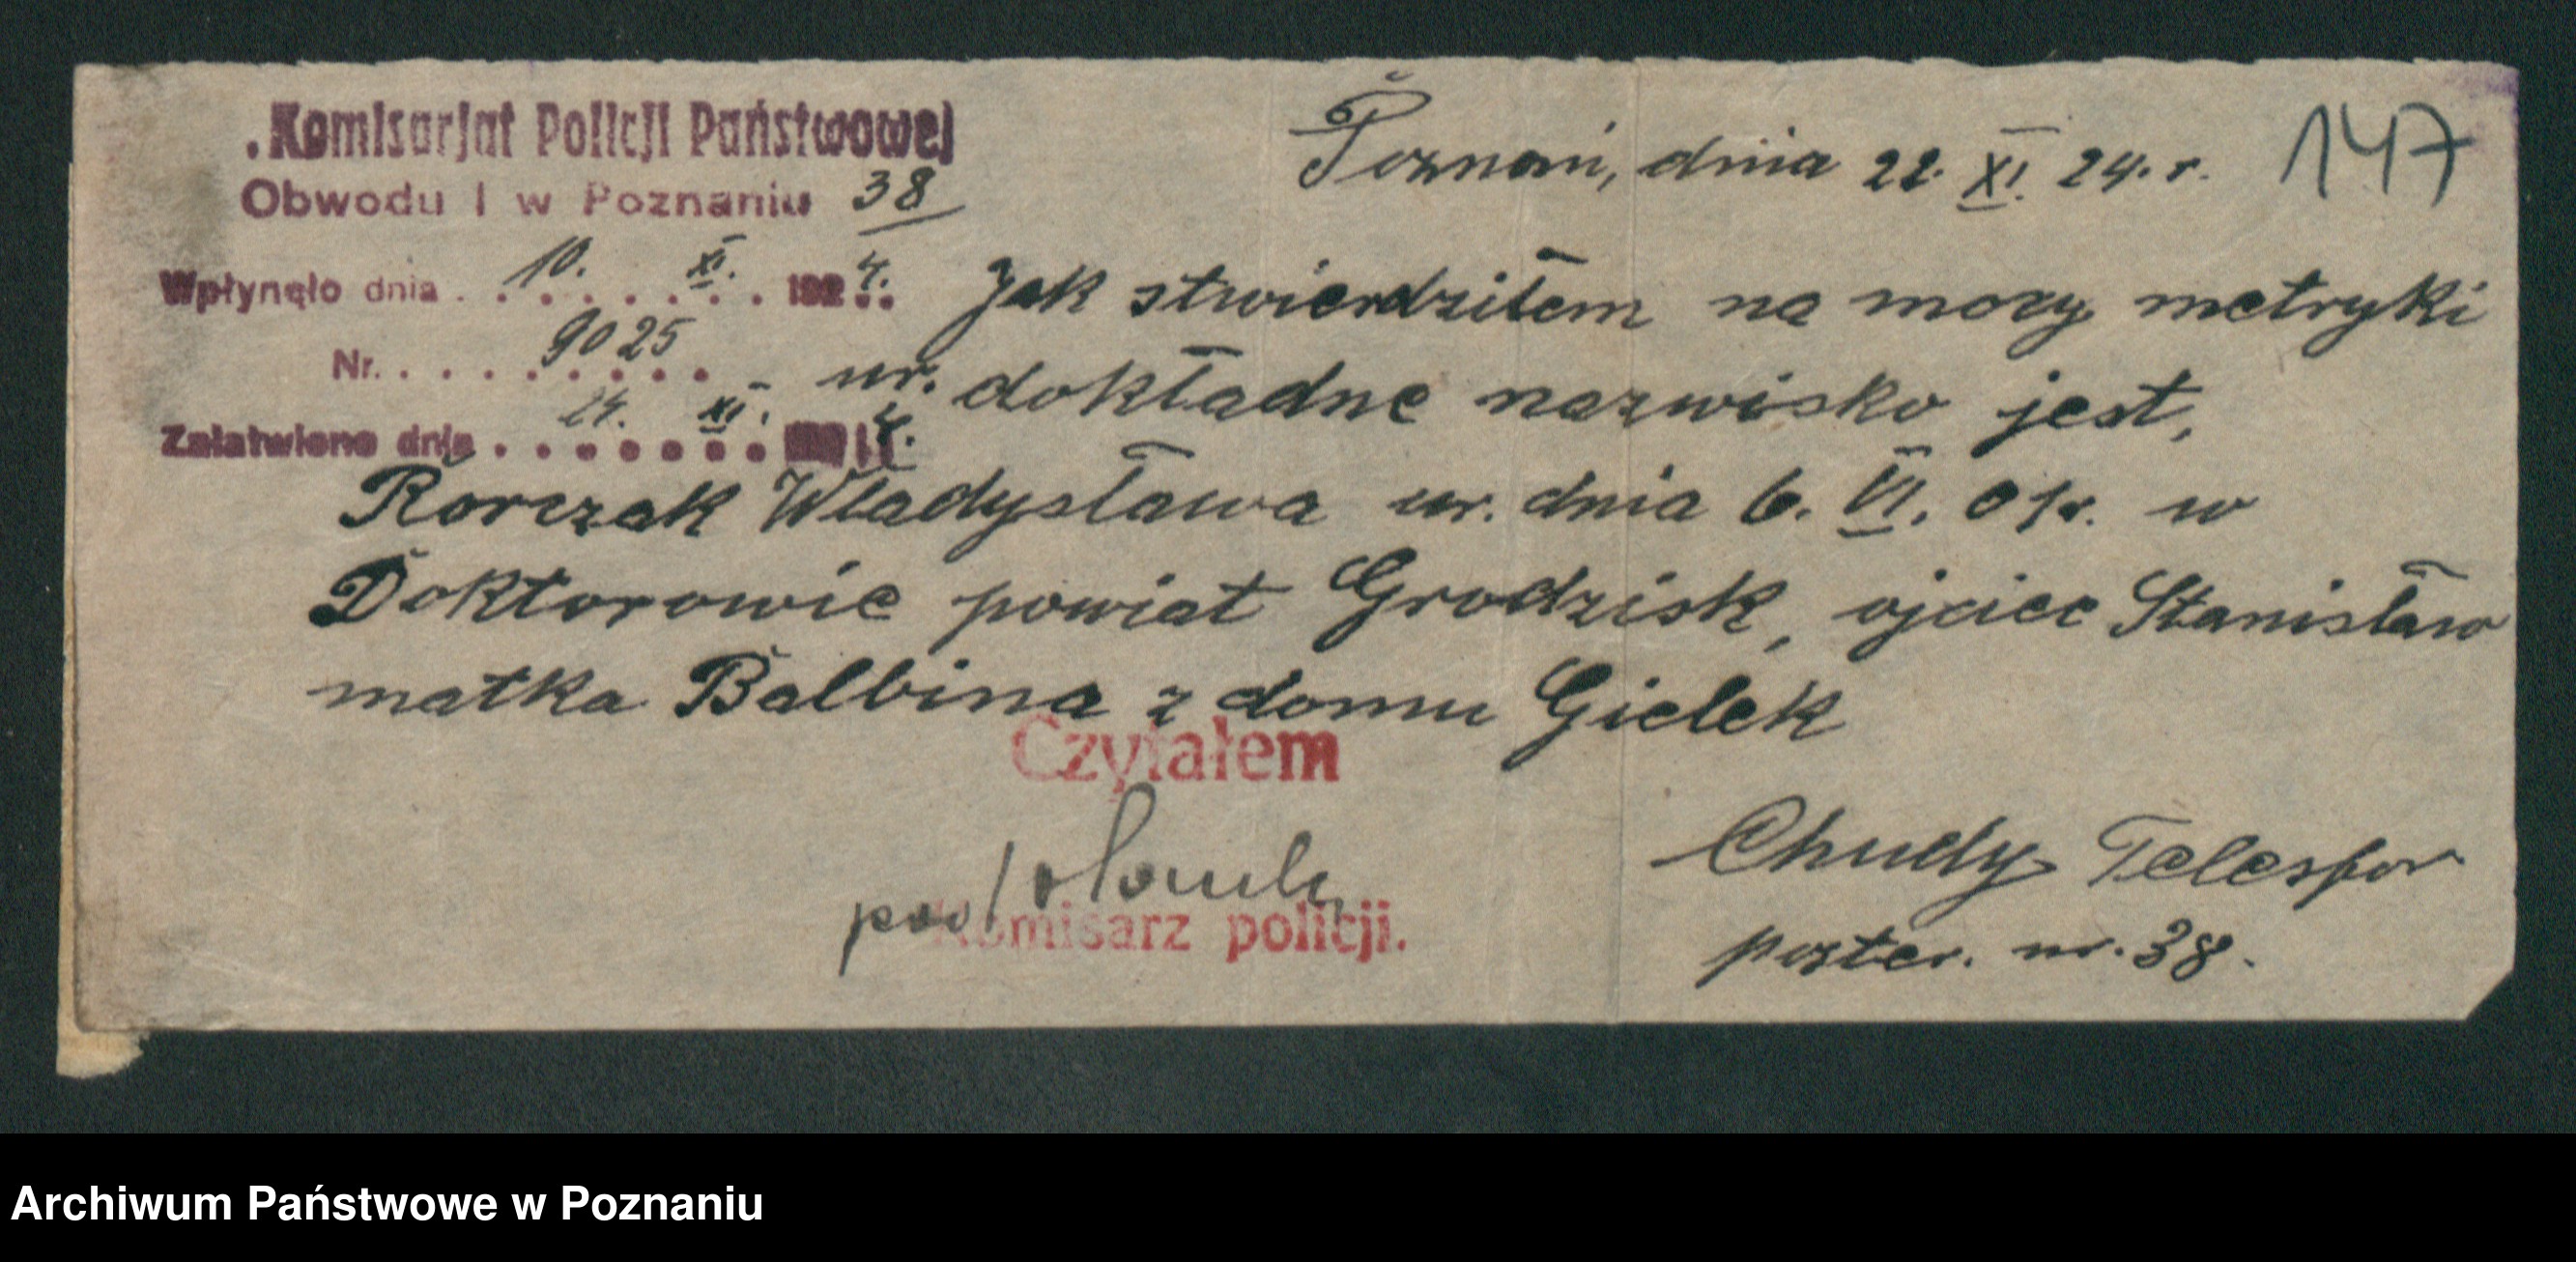 Komisarjat Policji Państwowej
Obwodu I w Poznaniu 38
Wpłynęło dnia . 10. XI. 1924.
Nr. 9025
Załatwiono dnia 24. XI. 4.
Poznań, dnia 22. XI. 24. r. 147
Jak stwierdziłem na mocy metryki
ur. dokładne nazwisko jest,
Rorczak Władysława ur. dnia 6. VI. 01r. w
Doktorowie powiat Grodzisk, ojciec Stanisław
matka Balbina z domu Gielek
Czytałem
Komisarz policji.
Chudy Telesfor
poster. nr. 38.